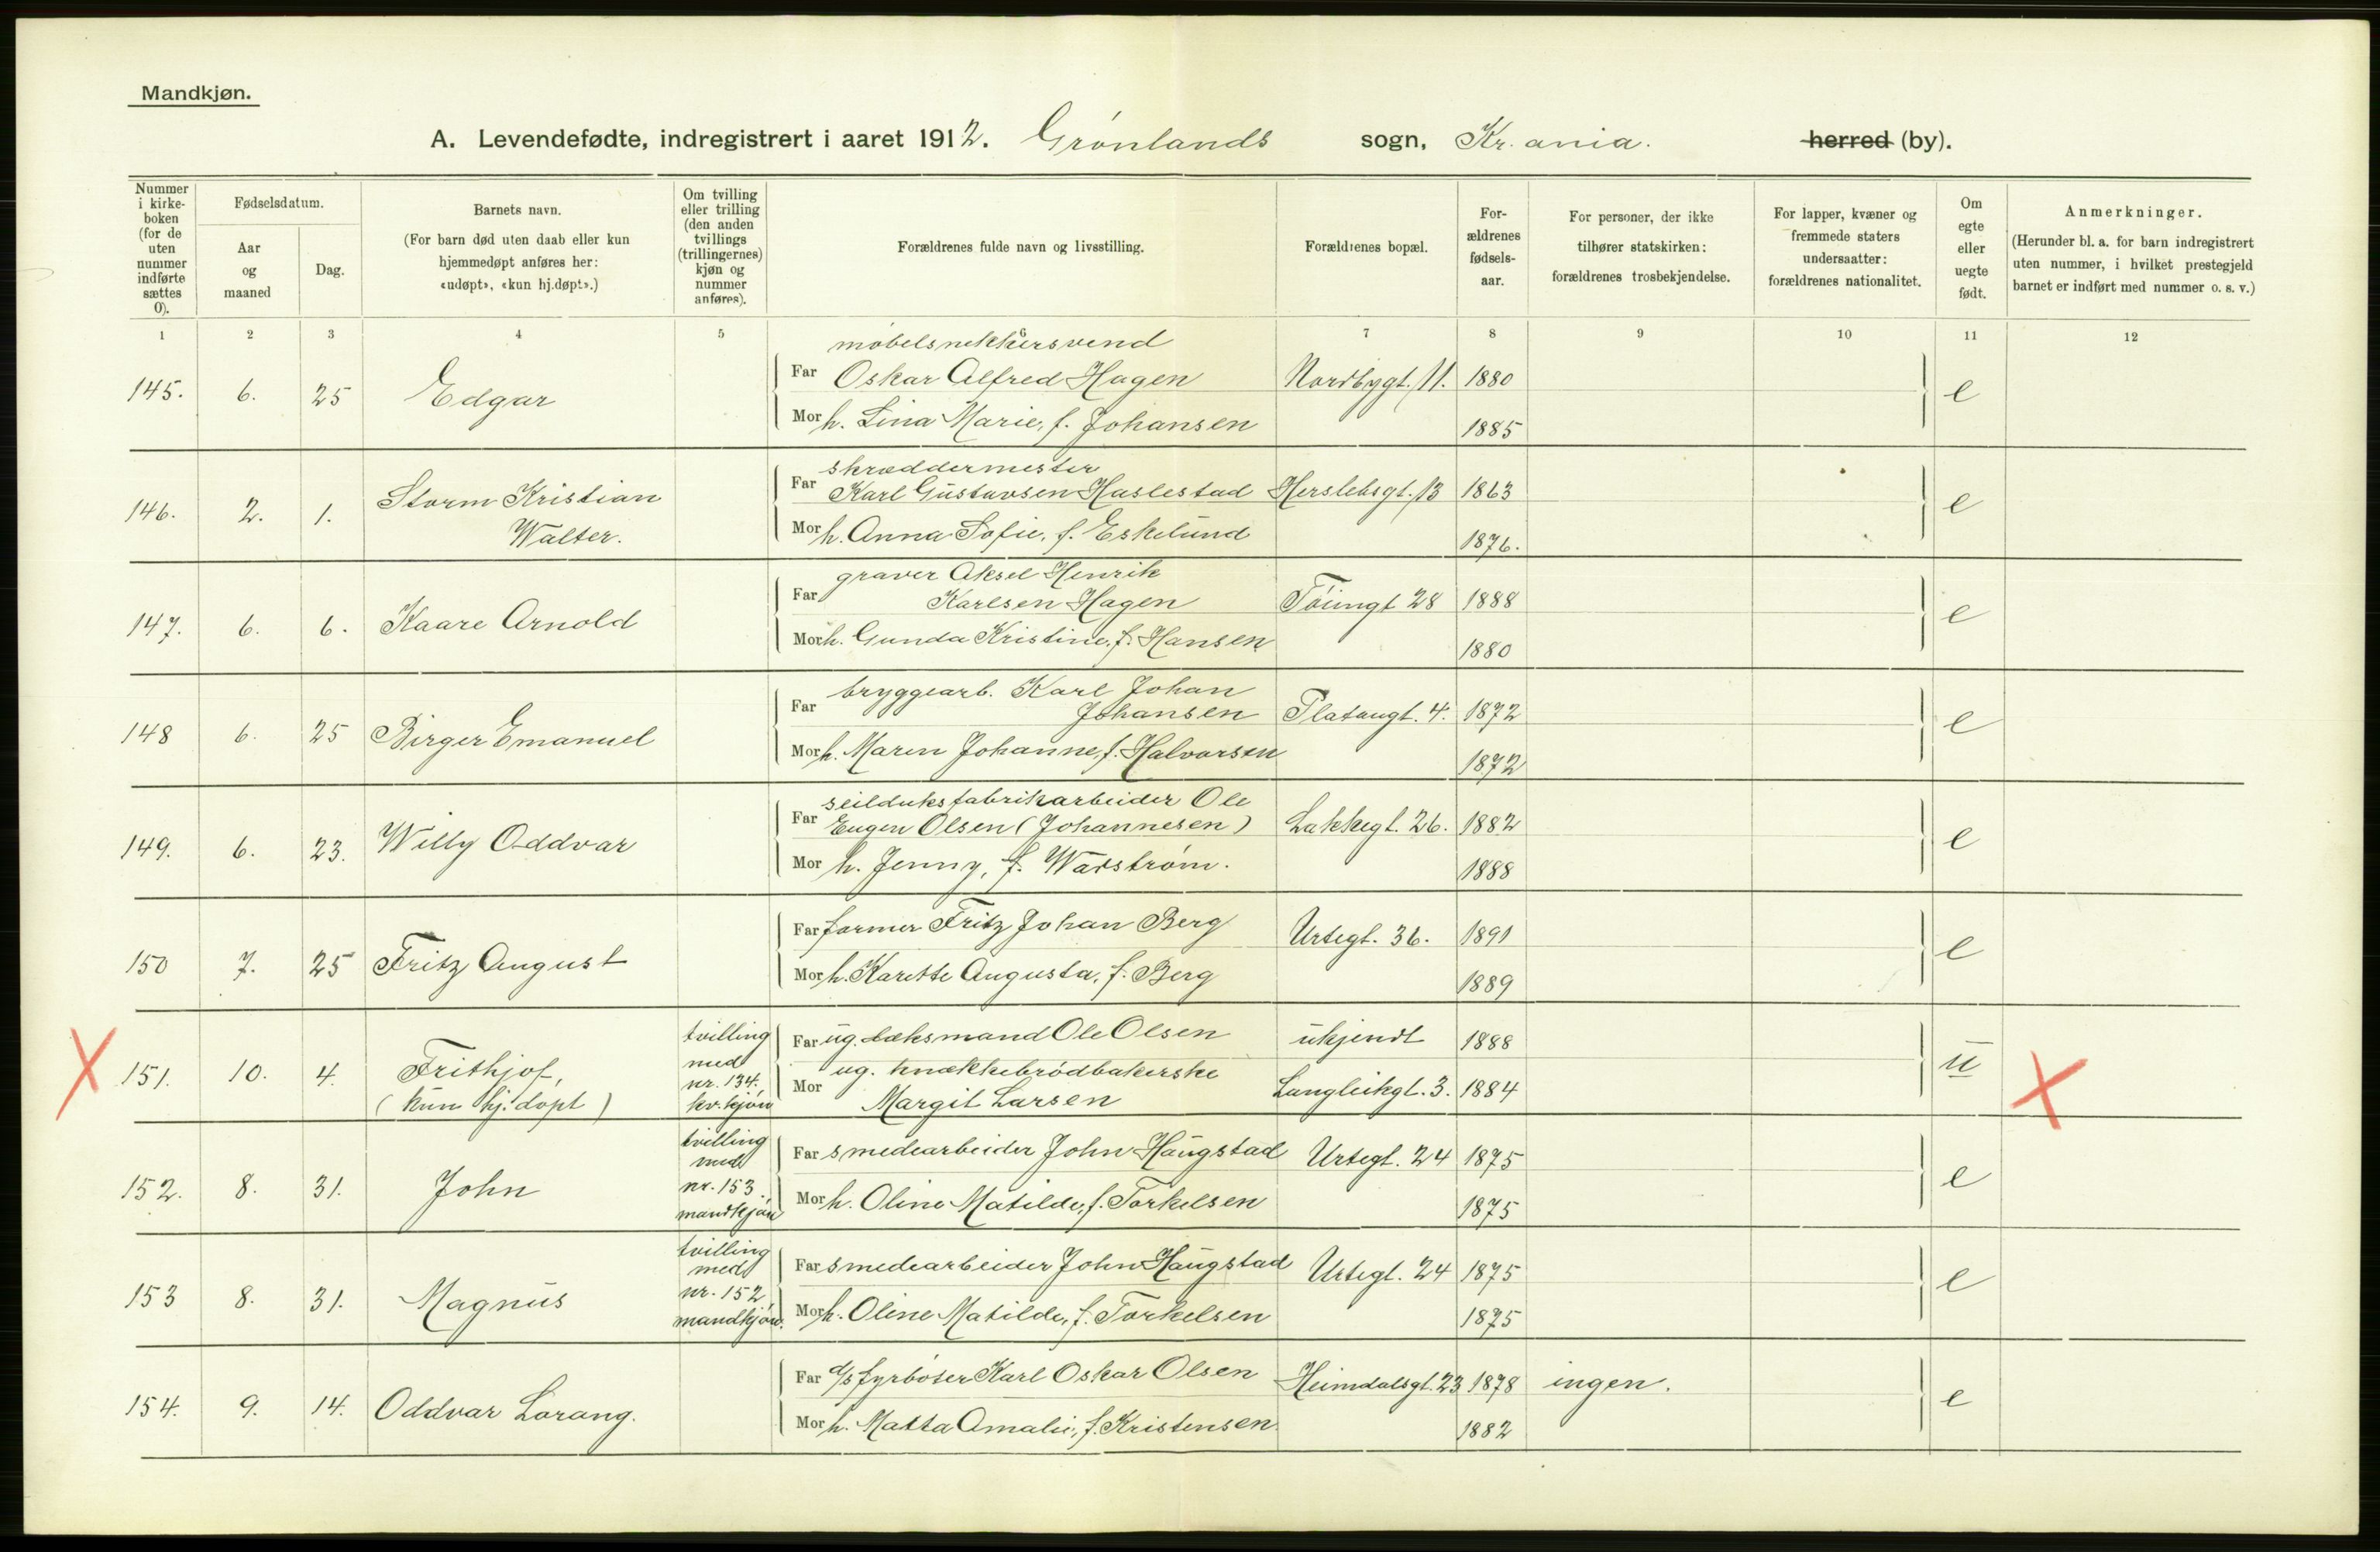 Mandkjøn.
A. Levendefødte, indregistrert i aaret 1912. Grønlands sogn, Kr.ania. herred (by).
Nummer i kirke-boken (for de uten nummer indførte sættes 0).
Fødselsdatum.
Aar og maaned
Dag.
Barnets navn.
(For barn død uten daab eller kun hjemmedøpt anføres her: «udøpt», «kun hj.døpt».)
Om tvilling eller trilling (den anden tvillings (trillingernes) kjøn og nummer anføres).
Forældrenes fulde navn og livsstilling.
Forældrenes bopæl.
For-ældrenes fødsels-aar.
For personer, der ikke tilhører statskirken: forældrenes trosbekjendelse.
For lapper, kvæner og fremmede staters undersaatter: forældrenes nationalitet.
Om egte eller uegte født.
Anmerkninger.
(Herunder bl. a. for barn indregistrert uten nummer, i hvilket prestegjeld barnet er indført med nummer o. s. v.)
1 2 3 4 5 6 7 8 9 10 11 12
møbelsnekkersvend
145. 6. 25 Edgar Far Oskar Alfred Hagen Nordbygt. 11. 1880 e
Mor h. Lina Marie, f. Johansen 1885
skræddermester
146. 2. 1. Storm Kristian Far Karl Gustavsen Haslestad Herslebsgt. 13 1863 e
Walter. Mor h. Anna Sofie, f. Eskelund 1876.
graver Aksel Henrik
147. 6. 6. Kaare Arnold Far Karlsen Hagen Tøiengt 28 1888 e
Mor h. Gunda Kristine, f. Hansen 1880
bryggearb. Karl Johan
148 6. 25 Birger Emanuel Far Johansen Platangt. 4. 1872 e
Mor h. Maren Johanne, f. Halvorsen 1872
seilduksfabrikarbeider Ole
149. 6. 23. Willy Oddvar Far Eugen Olsen (Johannesen) Lakkegt. 26. 1882 e
Mor h. Jenny, f. Wadstrøm. 1888
150 7. 25 Fritz August Far former Fritz Johan Berg Urtegt. 36. 1891 e
Mor h. Karette Augusta, f. Berg 1889
151. 10. 4. Frithjof, (kun hj. døpt) tvilling med nr. 134. kv. kjøn Far ug. læksmand Ole Olsen ukjendt 1888 u
ug. knækkebrødbakerske
Mor Margit Larsen Langleikgt. 3. 1884
152. 8. 31. John tvilling med nr. 153. mandkjøn Far smedearbeider John Haugstad Urtegt. 24 1875 e
Mor h. Oline Matilde, f. Torkelsen 1875
153 8. 31. Magnus tvilling med nr. 152 mandkjøn. Far smedearbeider John Haugstad Urtegt. 24 1875 e
Mor h. Oline Matilde, f. Torkelsen 1875
154. 9. 14. Oddvar Lorang. Far d/s fyrbøter Karl Oskar Olsen Heimdalsgt. 23 1878 ingen. e
Mor h. Matta Amalie, f. Kristensen. 1882